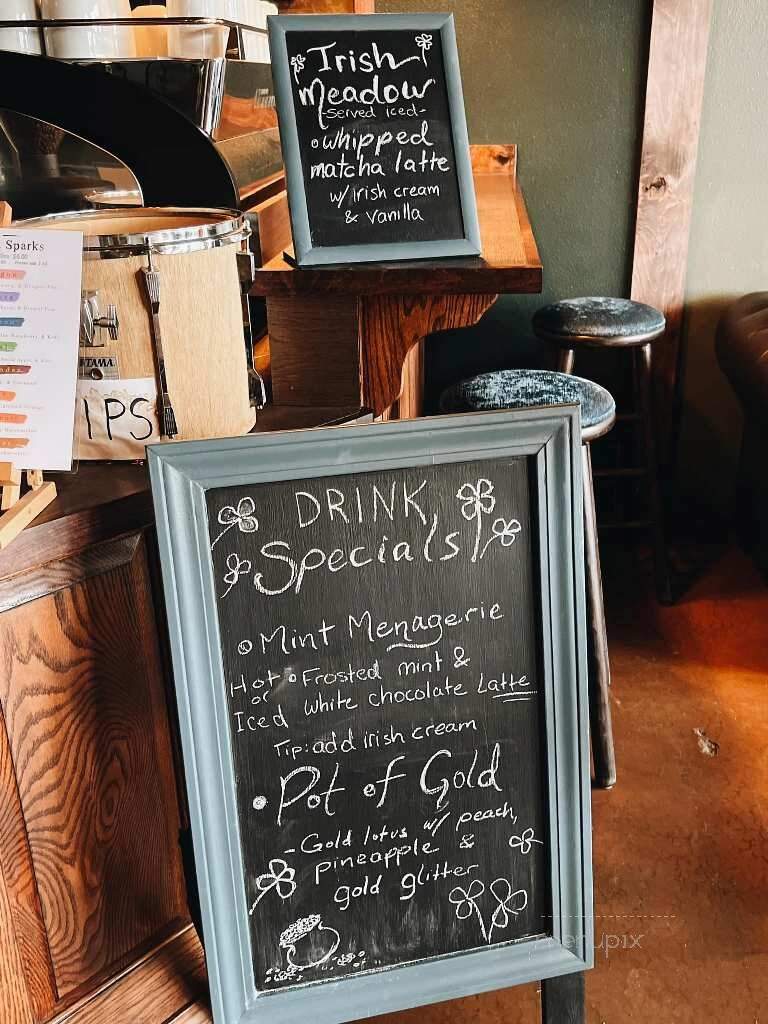 Irish
Meadow
-served iced-
whipped
matcha latte
w/ Irish cream
& Vanilla
Sparks
TAMA
IPS
DRINK
Specials
Mint Menagerie
Hot or Iced
Frosted mint &
white chocolate Latte
Tip: add irish cream
Pot of Gold
- Gold lotus w/ peach,
pineapple &
gold glitter
menupix